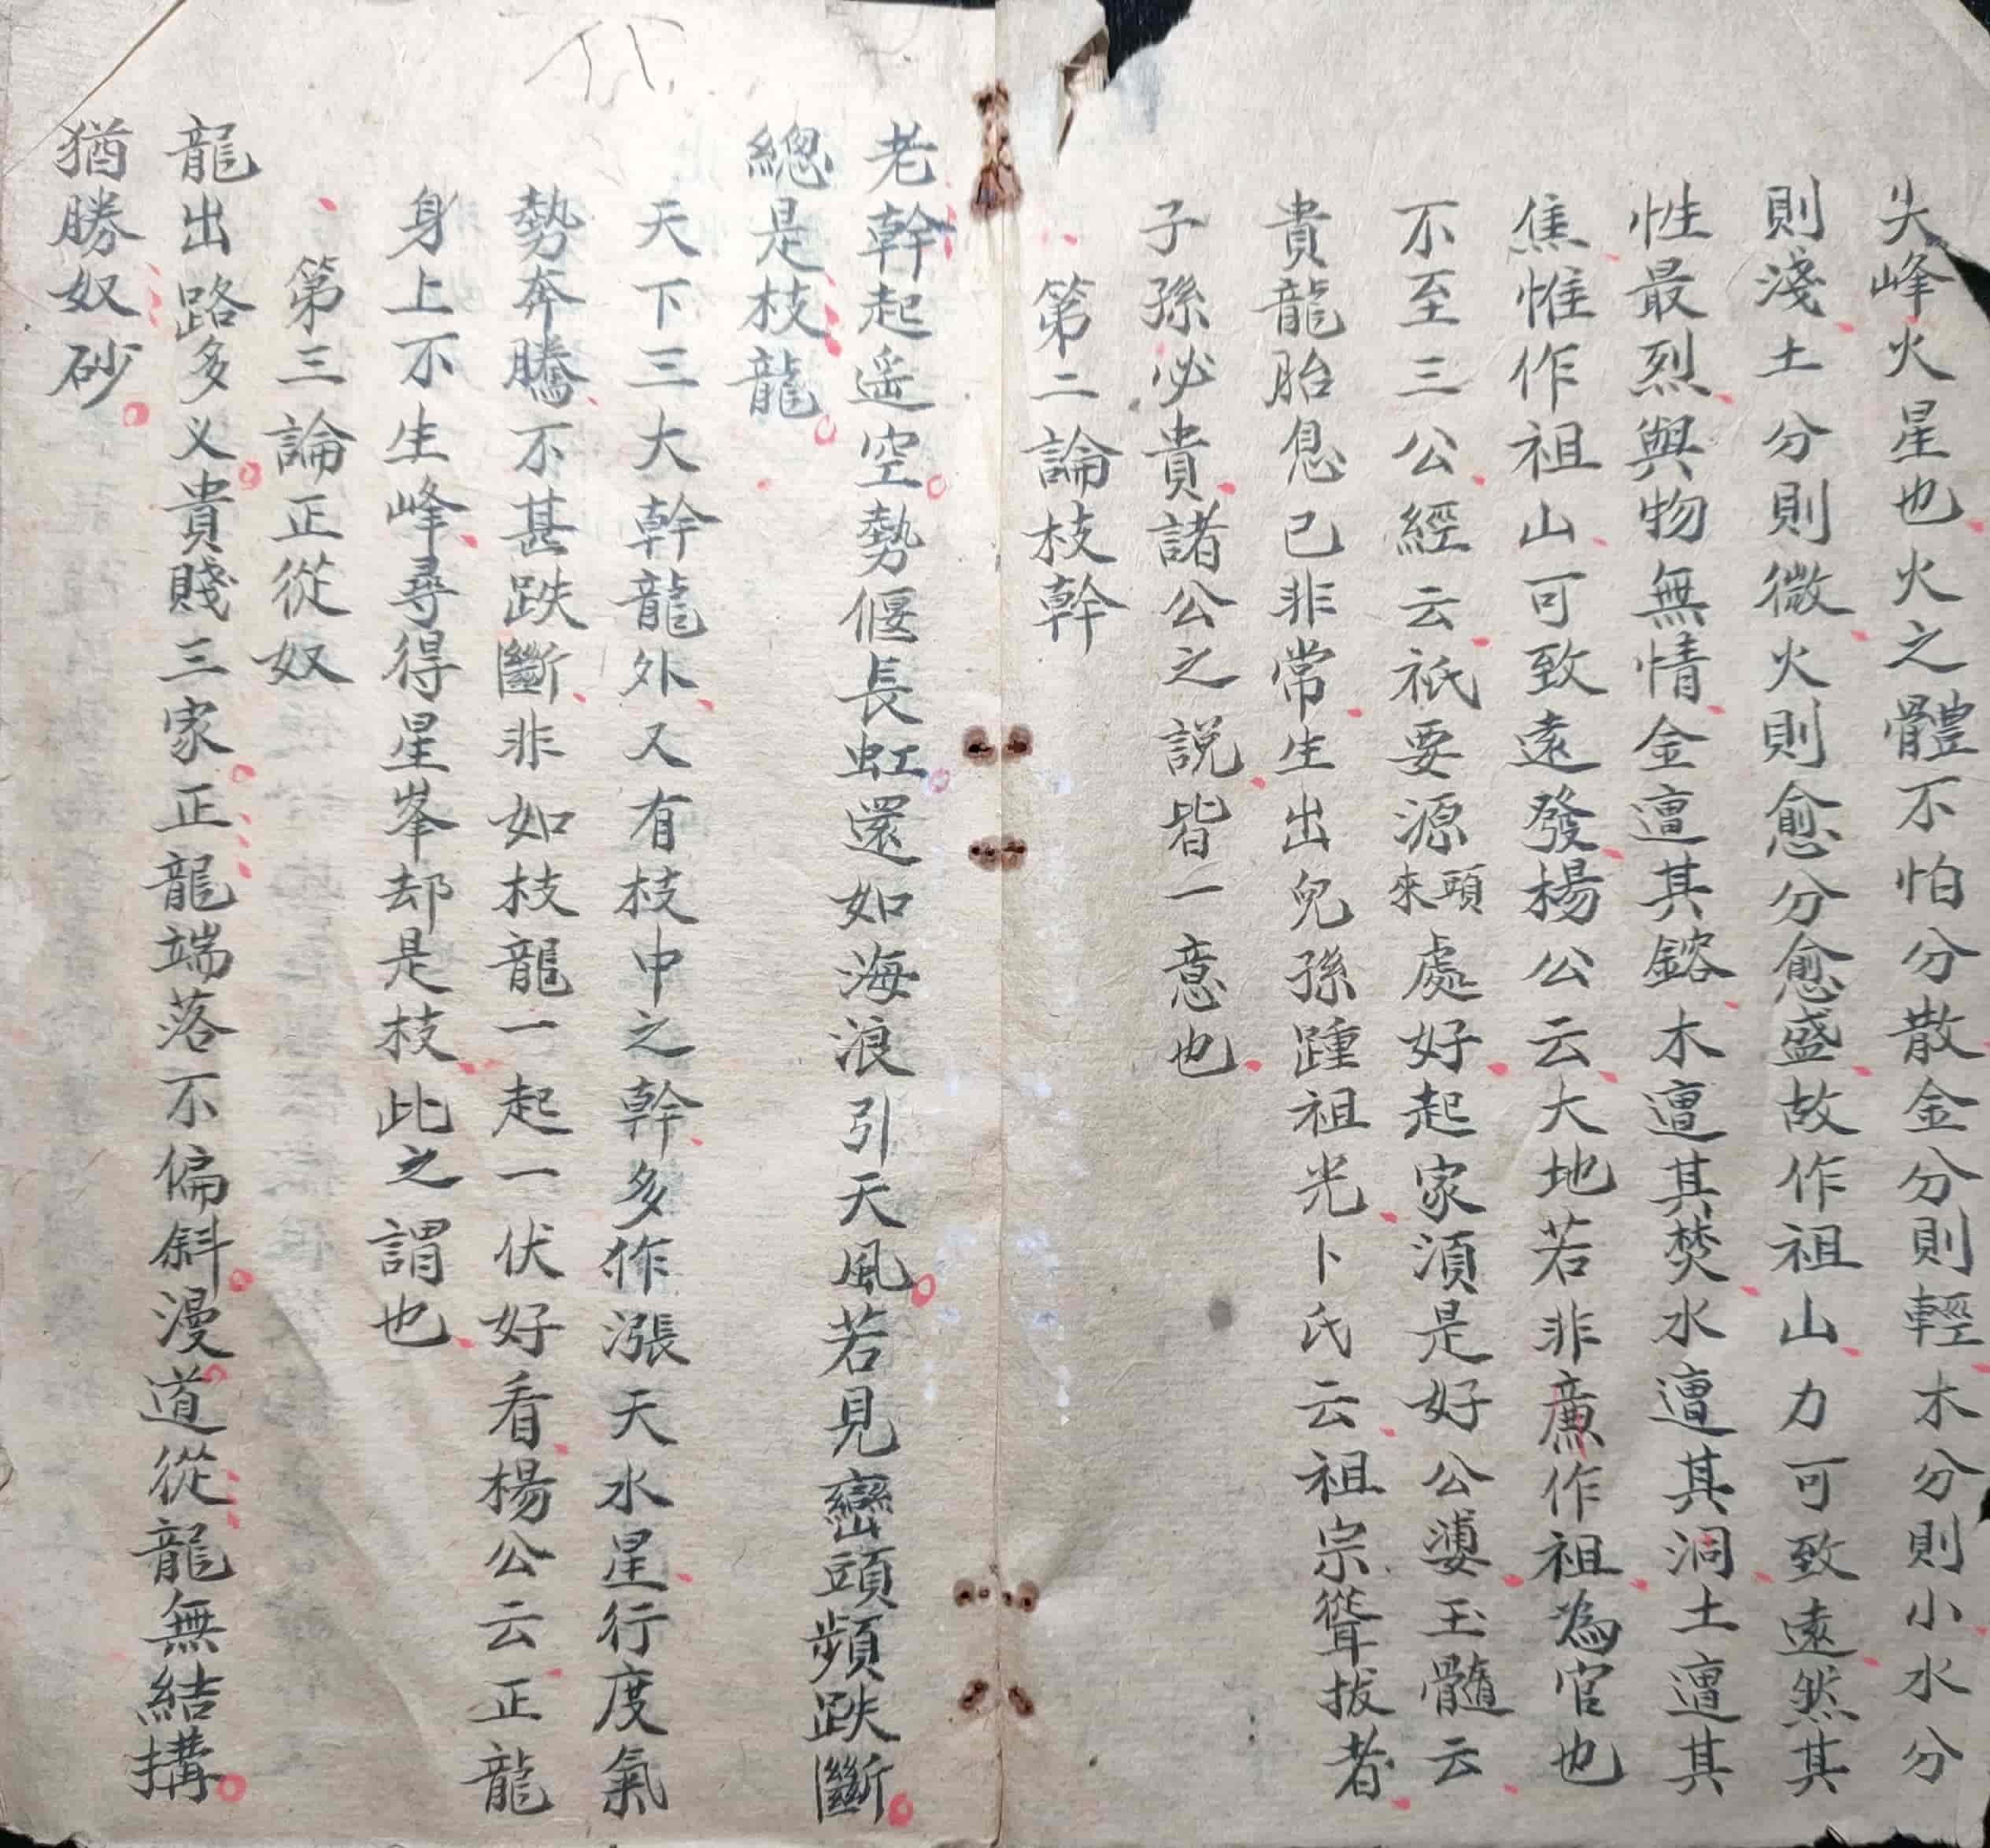 尖峰火星也火之體不怕分散金分則輕木分則小水分
則淺土分則微火則愈分愈盛故作祖山力可致遠然其
性最烈與物無情金遭其鎔木遭其焚水遭其涸土遭其
焦惟作祖山可致遠發楊公云大地若非廉作祖為官也
不至三公經云祇要源頭來處好起家須是好公婆玉髓云
貴龍胎息已非常生出兒孫踵祖光卜氏云祖宗聳拔者
子孫必貴諸公之説皆一意也
第二論枝幹
老幹起遥空勢偃長虹還如海浪引天風若見巒頭頻跌斷
總是枝龍
天下三大幹龍外又有枝中之幹多作漲天水星行度氣
勢奔騰不甚跌斷非如枝龍一起一伏好看楊公云正龍
身上不生峰尋得星峯却是枝此之謂也
第三論正從奴
龍出路多义貴賤三家正龍端落不偏斜漫道從龍無結搆
猶勝奴砂